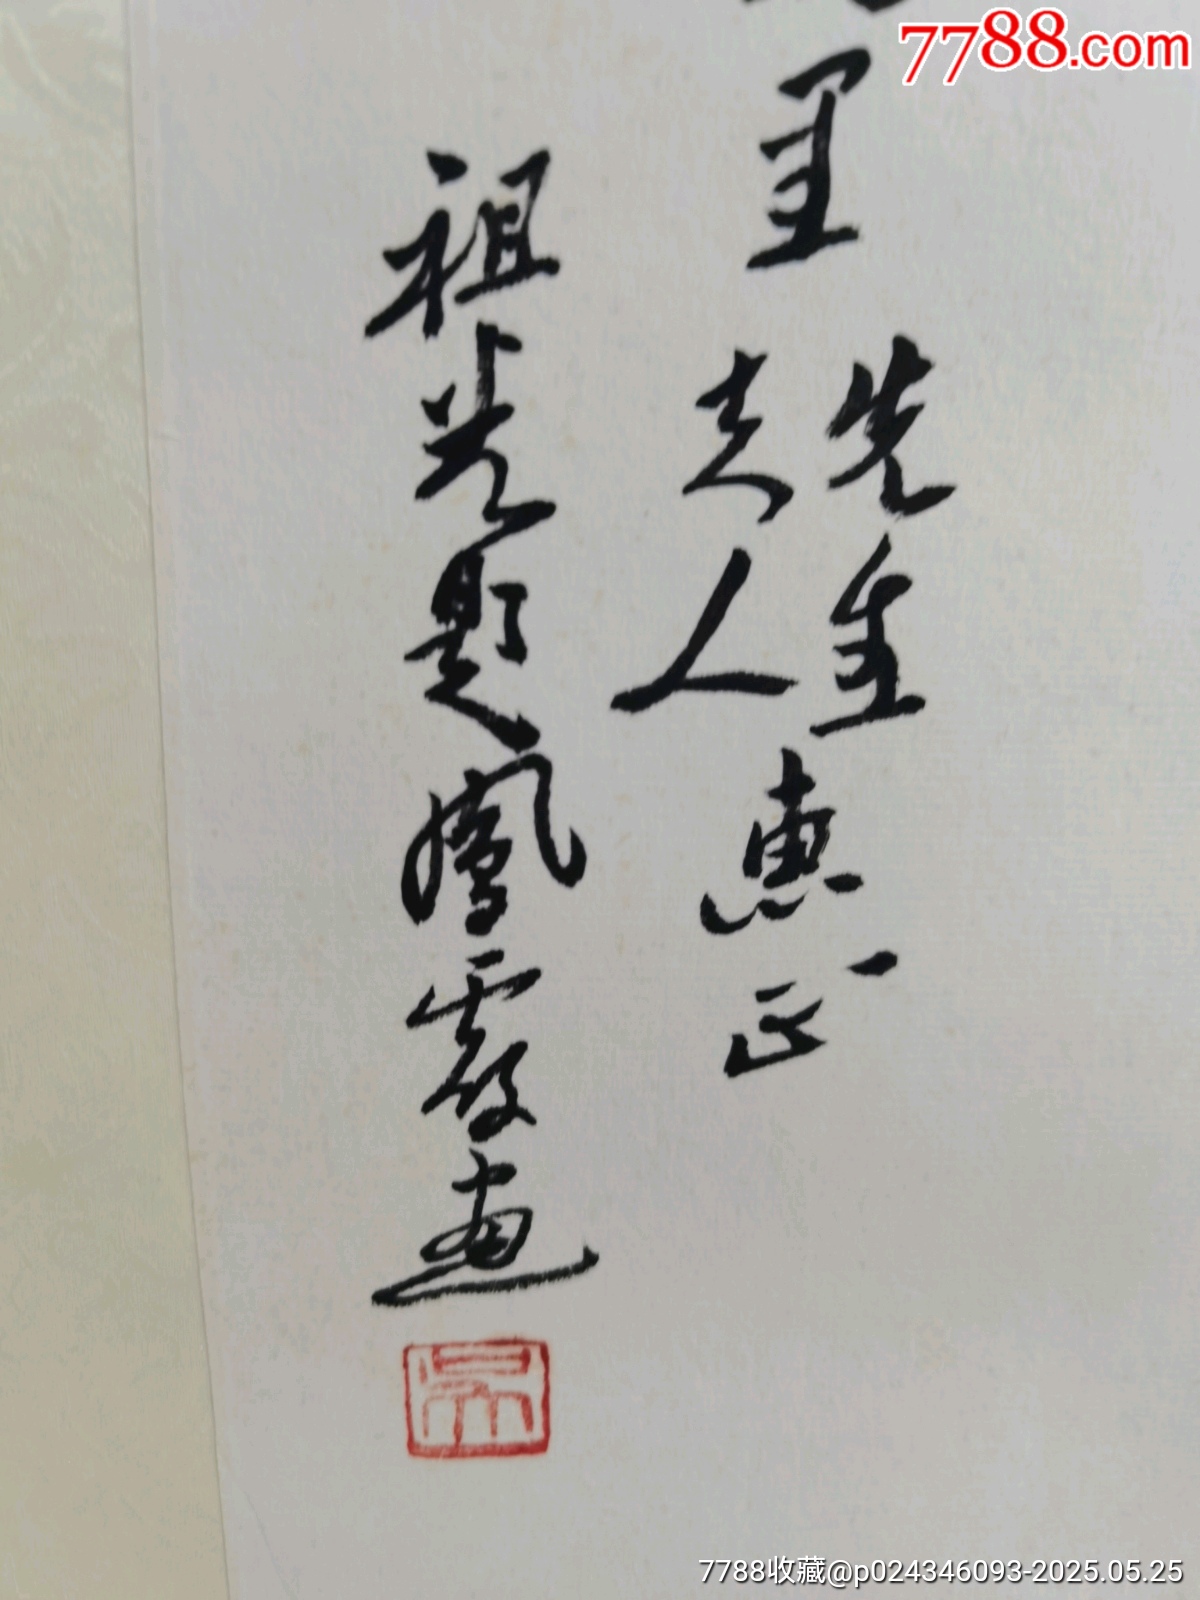 7788.com
里先生夫人惠正
祖光題鳳霞画
吴
7788收藏@p024346093-2025.05.25